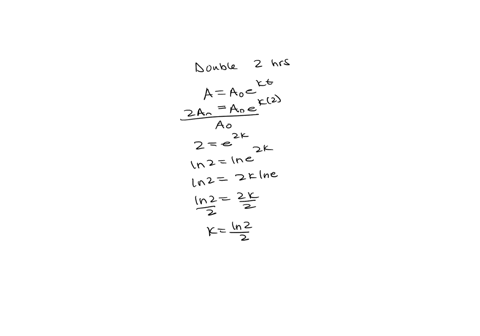 Double 2 hrs
A = A₀e^kt
2A₀ = A₀e^k(2)
A₀
2 = e^2k
ln2 = lne^2k
ln2 = 2klne
ln2/2 = 2k/2
K = ln2/2